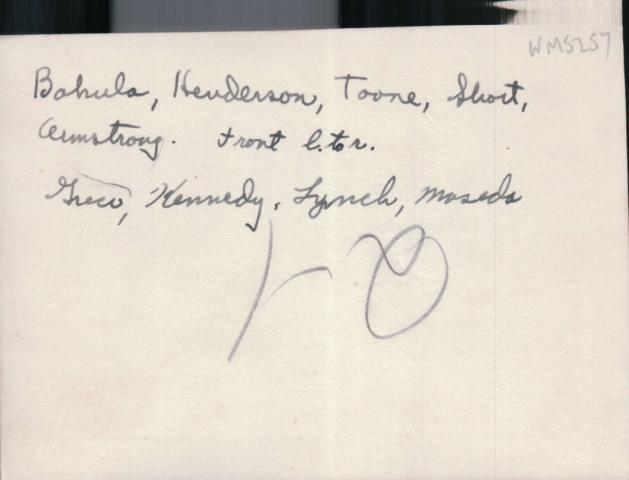 WM5257
Bahula, Henderson, Toone, Short,
Armstrong. Front l. to r.
Greco, Kennedy, Lynch, Maseda